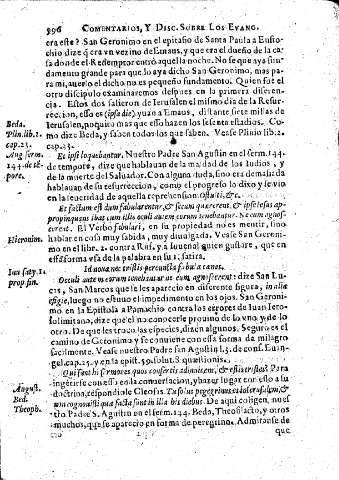 996 COMENTARIOS, Y DISC. SOBRE LOS EVANG.
era este? San Geronimo en el epitafio de Santa Paula a Eusto-
chio dize q̃ era vn vezino de Emaus, y que era el dueño de la ca-
sa donde el Redemptor entrò aquella noche. No se que aya fun-
damento grande para que lo aya dicho San Geronimo, mas pa-
ra mi, auerlo el dicho no es pequeño fundamento. Quien fue el
otro discipulo examinaremos despues en la primera diferen-
cia. Estos dos salieron de Ierusalen el mismo dia de la Resur-
reccion, esso es (ipsa die) yuan a Emaus, distante siete millas de
Ierusalen,
Beda.
Plin. lib. 2.
cap. 23.
mo dize Beda, y saben todos los que saben. Vease Plinio lib. 2.
cap. 23.
Aug. serm.
144. de tẽ-
pore.
Et ipsi loquebantur. Nuestro Padre San Agustin en el serm. 144.
de tempore, dize que hablauan de la maldad de los Iudios, y
de la muerte del Saluador. Con alguna duda, sino era demasiada
hablauan de su resurreccion, como el progreso lo dixo y se vio
en la seueridad de aquella reprehension. O stulti, &c.
Et factum est dum fabularentur, & secum quærerent, & ipse Iesus ap-
propinquans ibat cum illis oculi autem eorum tenebantur. Ne eum agnos-
cerent. El Verbo fabulari, en su propiedad no es mentir, sino
Hieronim.
hablar en cosa muy sabida, muy diuulgada. Vease San Geroni-
mo en el libr. 2. contra Ruf. y a Iuuenal quien gustare, que en
essa forma vsa de la palabra en su 1. satira.
Iuu saty. 1.
prop fin.
Id noua nec tristis per cuncta fabula cœnas.
Oculi autem eorum tenebantur ne eum agnoscerent: dize San Lu-
cas, San Marcos que se les aparecio en diferente figura, in alia
efigie, luego no estuuo el impedimento en los ojos. San Geroni-
mo en la Epistola a Pamachio contra los errores de Iuan Iero-
solimitano, dize que el no conocerle prouino de lo vno, y de lo
otro. De que les troco las especies, dizen algunos. Seguro es el
camino de Geronimo y se conuiene con essa forma de milagro
facilmente. Vease nuestro Padre san Agustin l. 3. de cons. Euan-
gel. cap. 25. y en la epist. 59. solut. 8. quæstionis.
Qui sunt hi sermones quos confertis adinuicem, & estis tristes? Para
ingerirse con essos en la conuersacion, y hazer lugar con esso a su
August.
Bed.
Theoph.
doctrina, respondiole Cleofas. Tu solus peregrinus es in Ierusalem, &
non cognouisti quæ facta sunt in illa his diebus. De aqui coligen, nues-
tro Padre S. Agustin en el serm. 144. Beda, Theofilacto, y otros
muchos, que se aparecio en forma de peregrino. Admiranse de
que